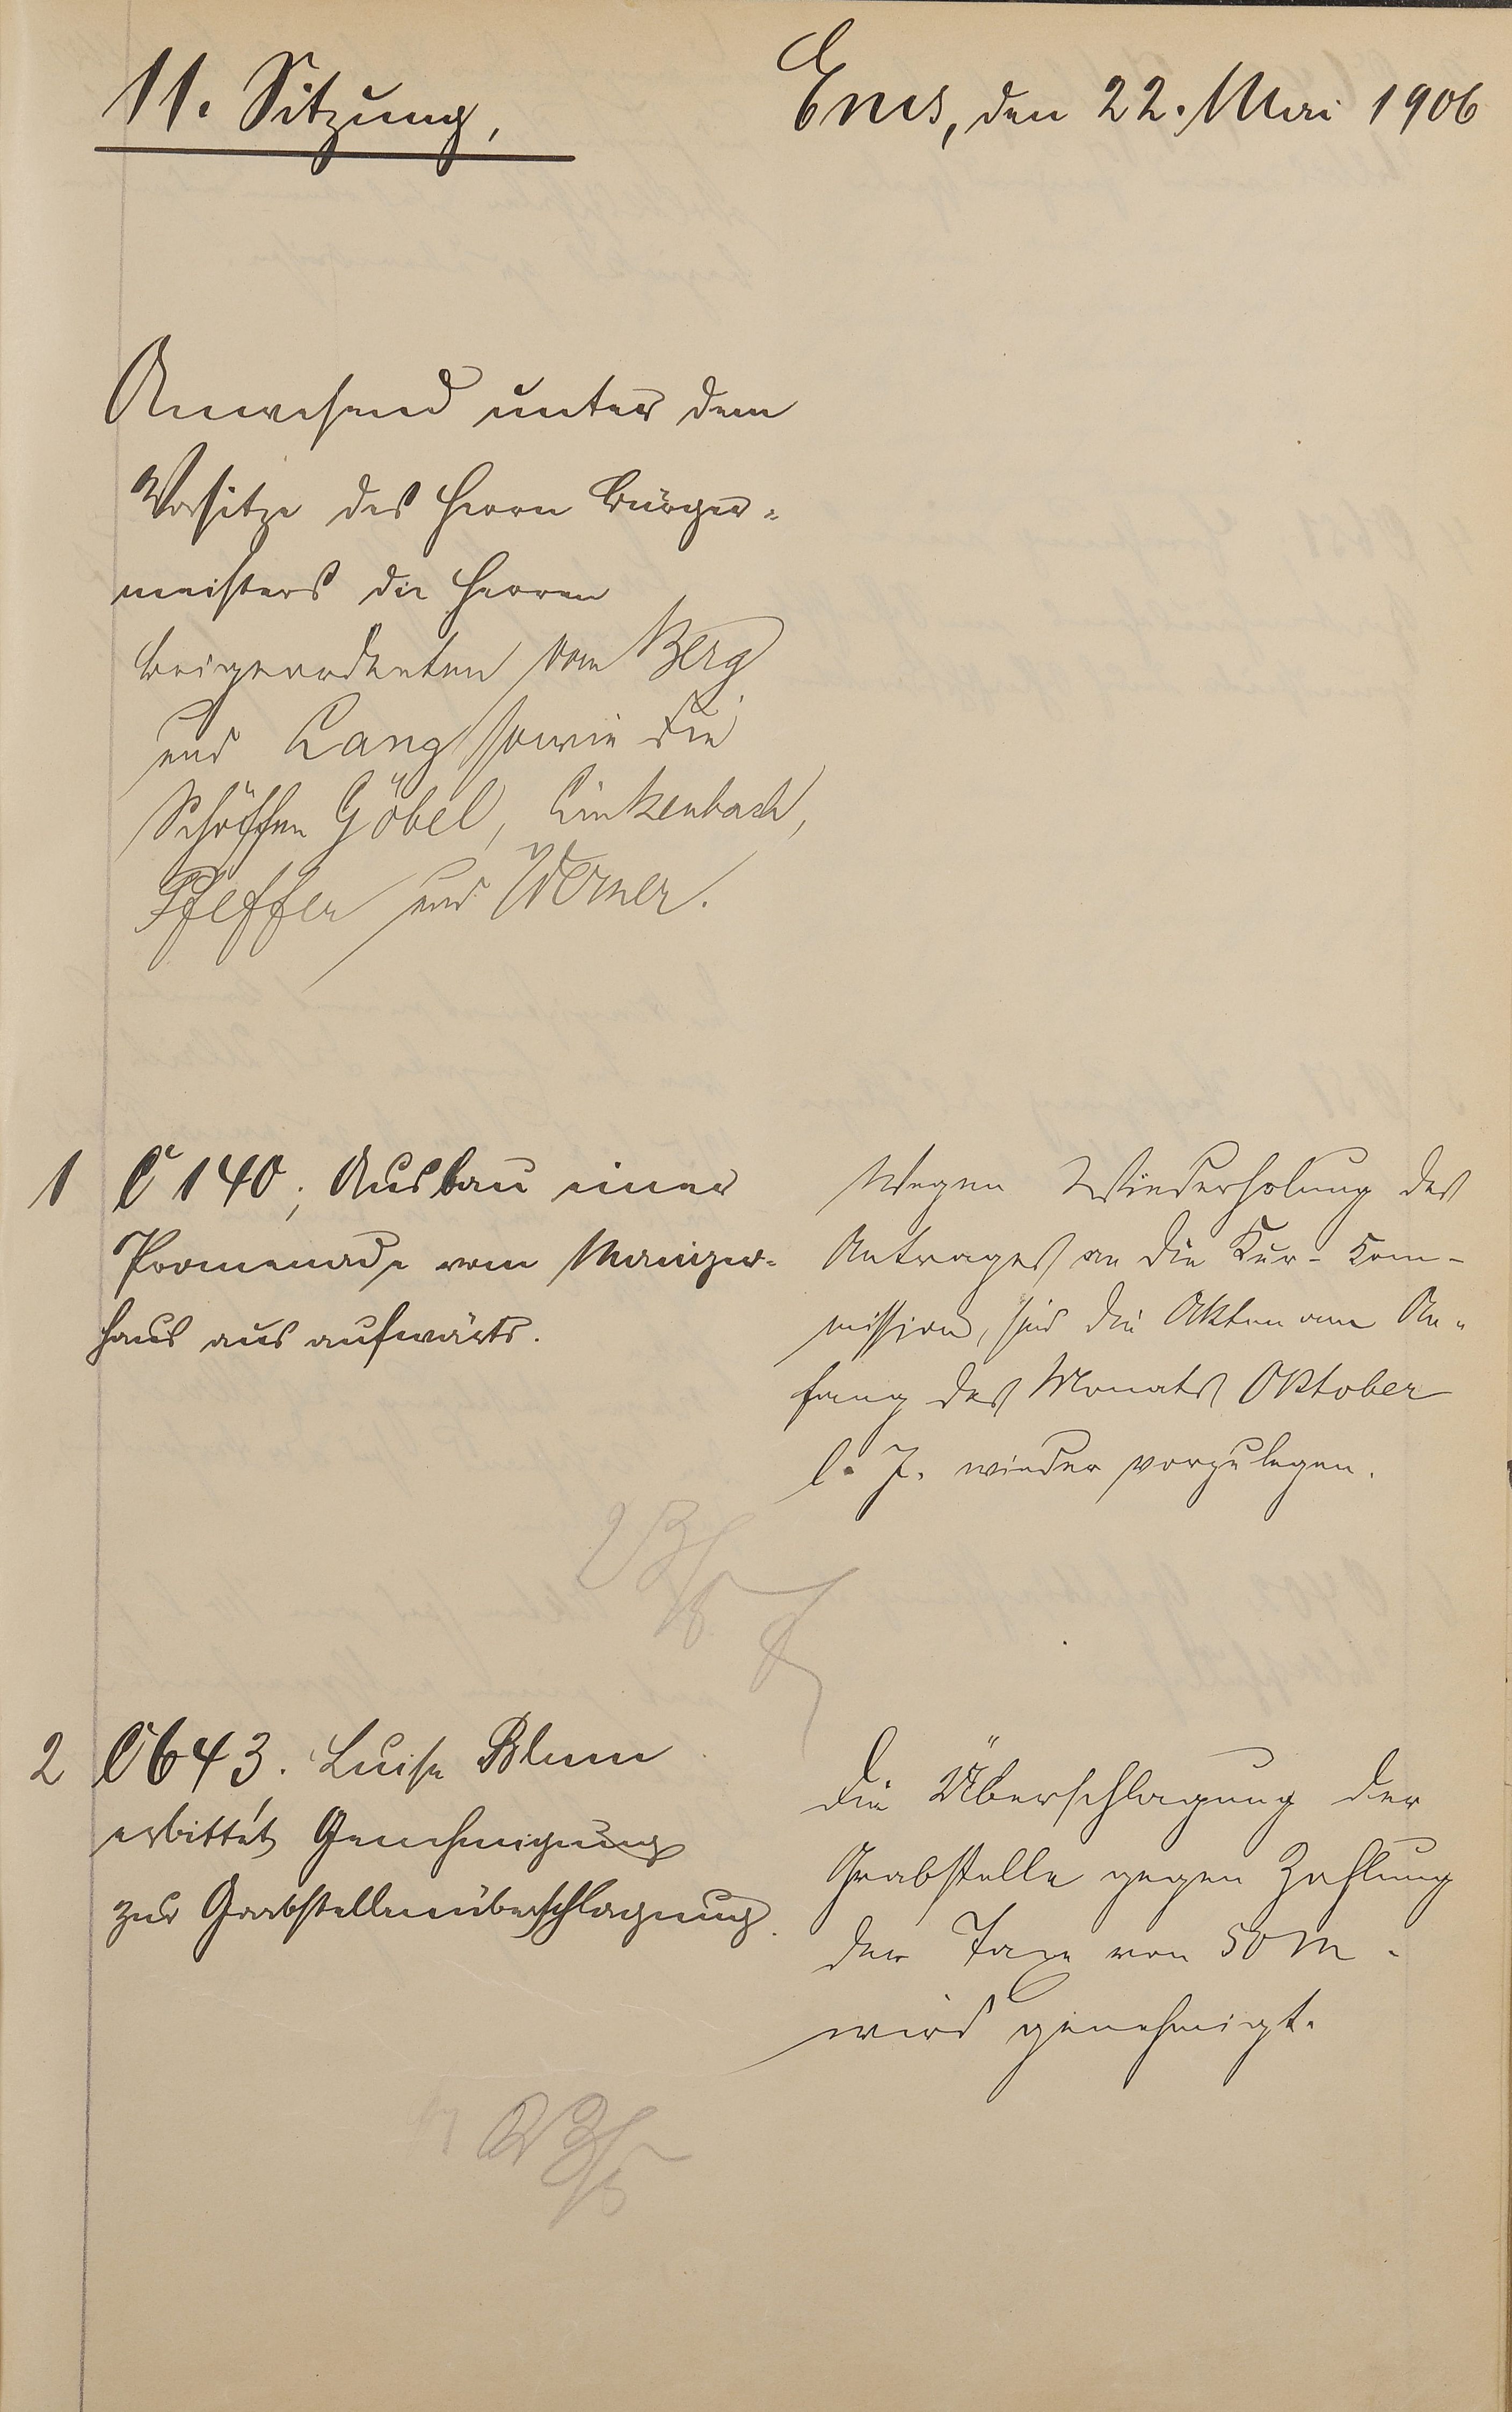 11. Sitzung,
Ems, den 22. Mai 1906
Anwesend unter dem
Vorsitze des Herrn Bürger-
meisters die Herren
Beigeordneten vom Berg
und Lang sowie die
Schöffen Göbel, Linkenbach,
Pfeffer und Werner.
1 C 140; Ausbau einer
Promenade vom Mainzer-
haus aus aufwärts.
Wegen Wiederholung des
Antrages an die Kur-Kom-
mission, sind die Akten am An-
fang des Monats Oktober
l. J. wieder vorzulegen.
2 C 643. Luise Blum
erbittet Genehmigung
zur Grabstellenüberschlagung.
Die Überschlagung der
Grabstelle gegen Zahlung
der Taxe von 50 M.
wird genehmigt.